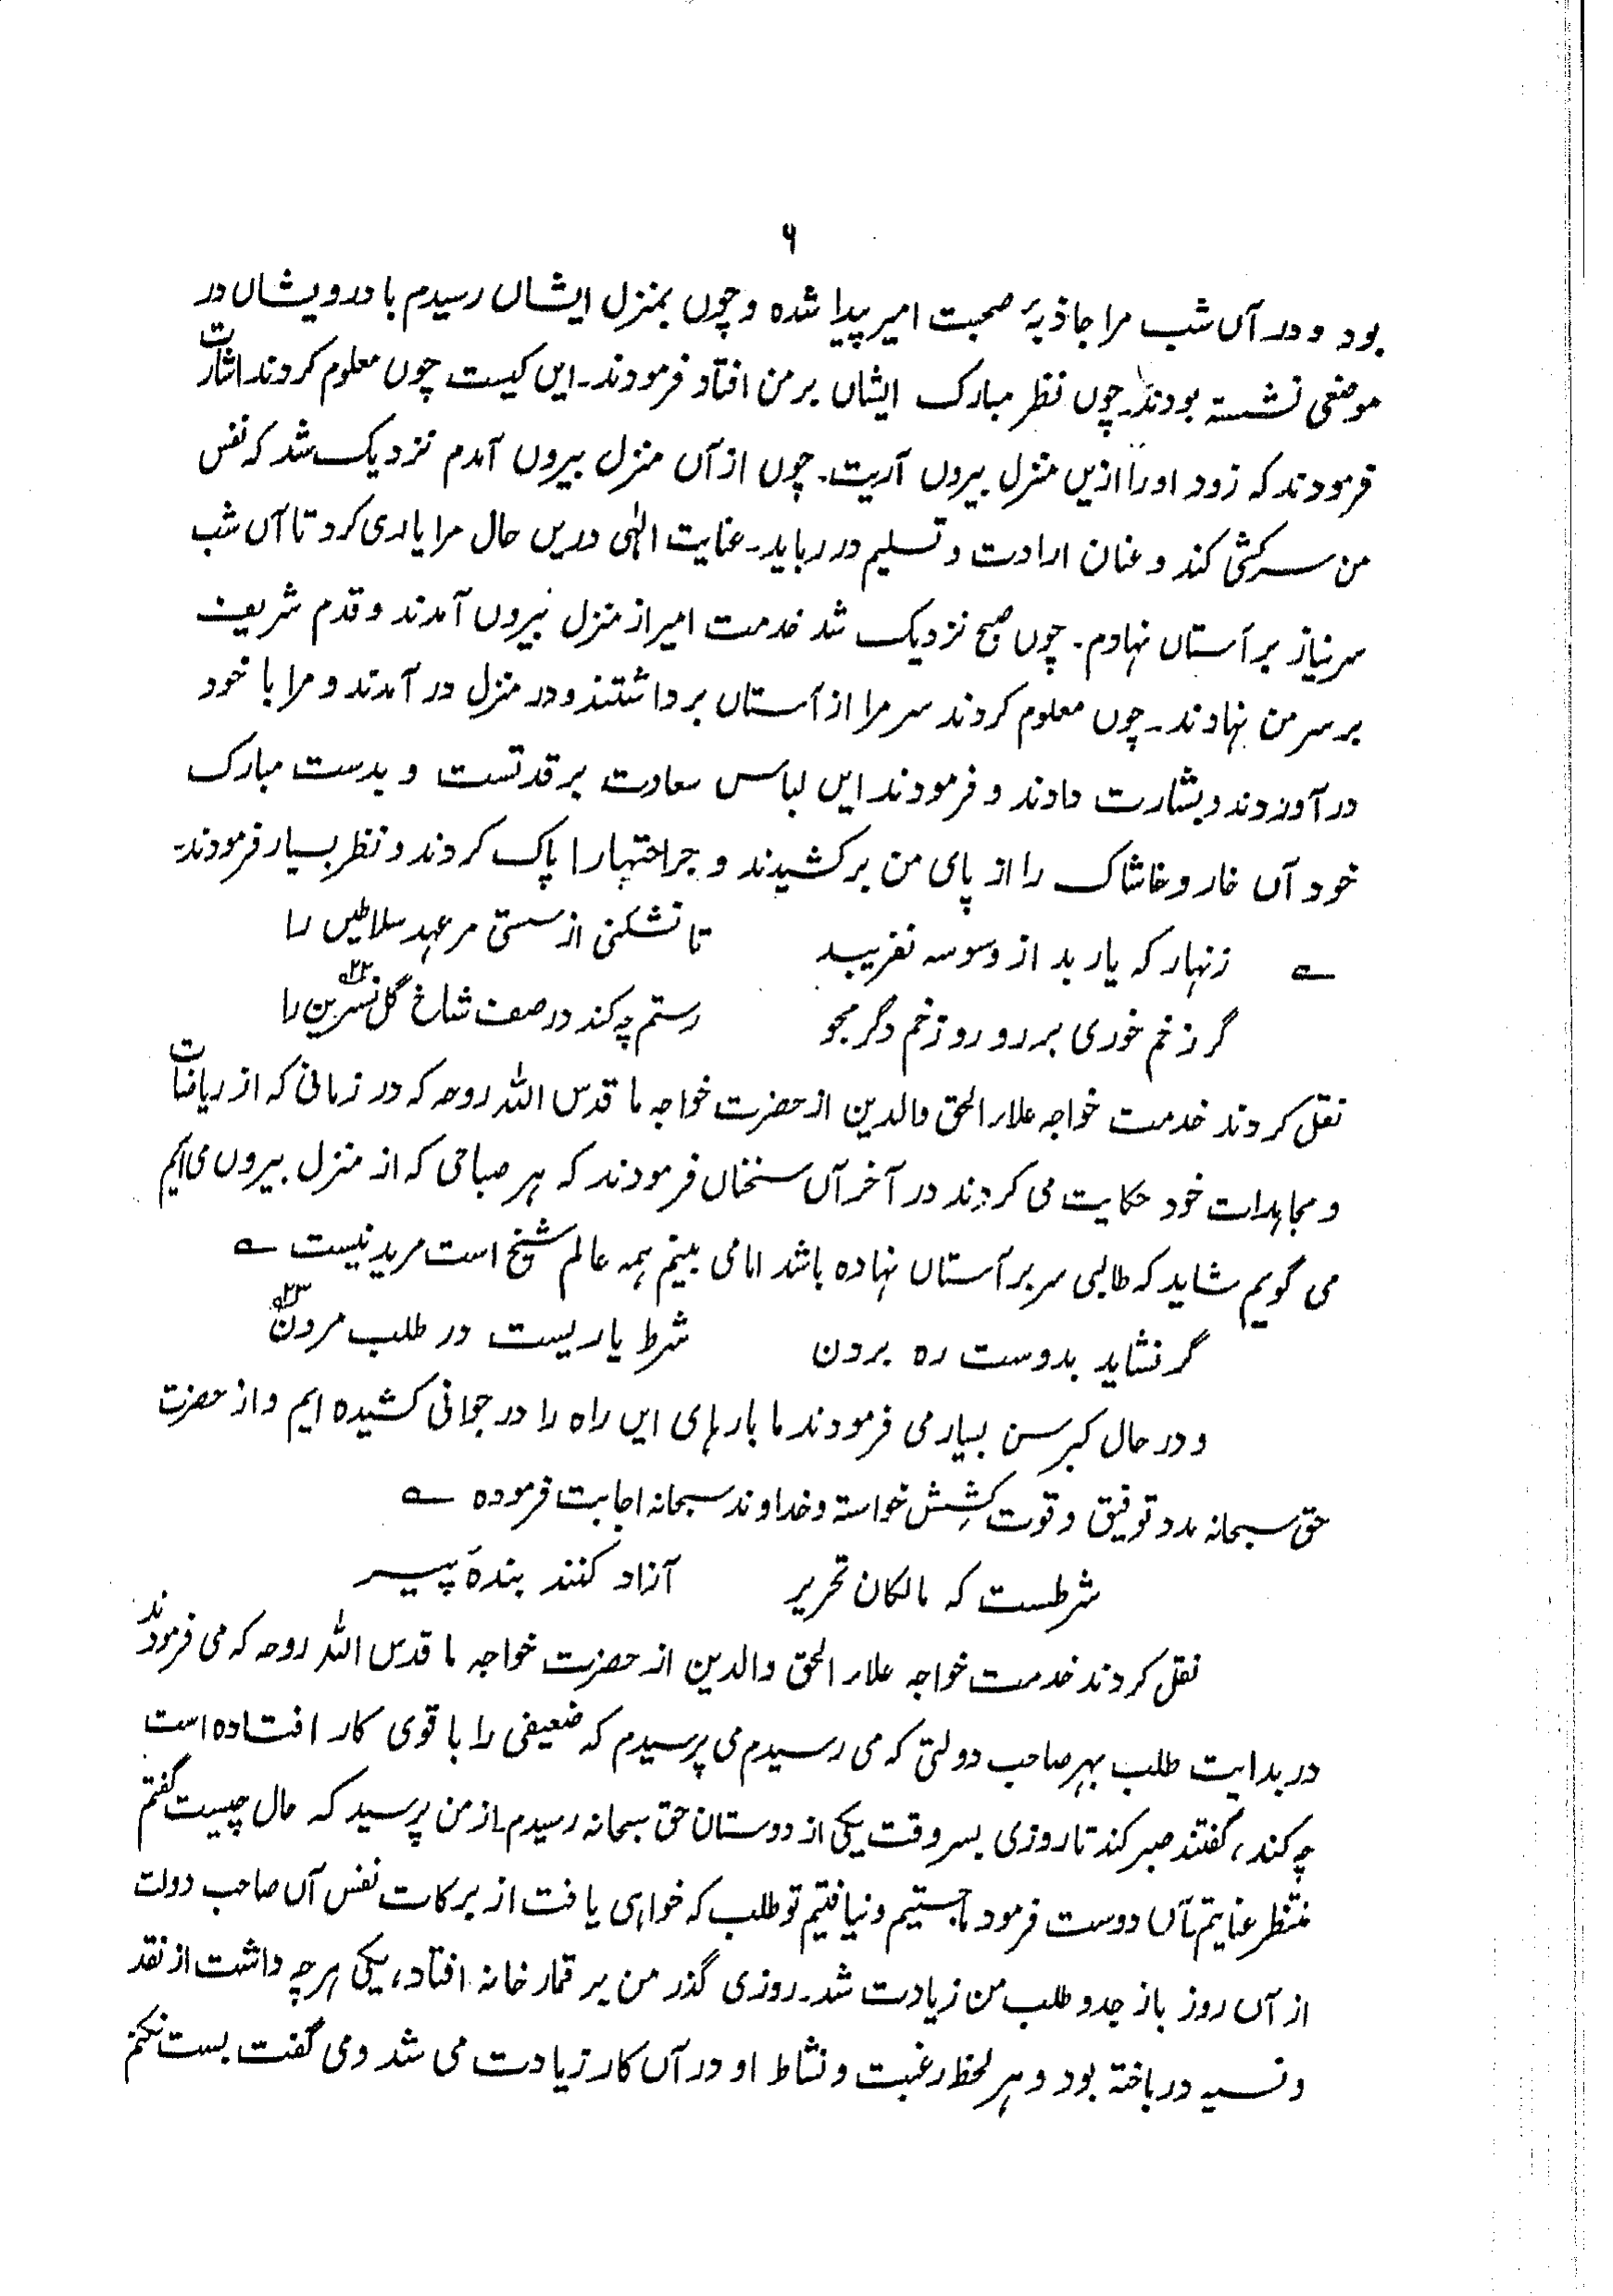 ۶
بود و در آں شب مرا جاذبۂ صحبت امیر پیدا شدہ و چوں بمنزل ایشاں رسیدم با درویشاں در
موضعی نشستہ بودند۔ چوں نظر مبارک ایشاں بر من افتاد فرمودند۔ ایں کیست چوں معلوم کردند اشارت
فرمودند کہ زود اورا ازیں منزل بیروں آریت۔ چوں از آں منزل بیروں آمدم نزدیک شد کہ نفس
من سرکشی کند و عنان ارادت و تسلیم در رباید۔ عنایت الٰہی دریں حال مرا یاری کرد تا آں شب
سر نیاز بر آستاں نہادم۔ چوں صبح نزدیک شد خدمت امیر از منزل بیروں آمدند و قدم شریف
بر سر من نہادند۔ چوں معلوم کردند سر مرا از آستاں برداشتند و در منزل در آمدند و مرا با خود
در آوردند و بشارت دادند و فرمودند ایں لباس سعادت بر قد تست و بدست مبارک
خود آں خار و خاشاک را از پای من بر کشیدند و جراحتہا را پاک کردند و نظر بسیار فرمودند۔
؎ زنہار کہ یار بد از وسوسہ نفریبد تا نشکنی از سستی مر عہد سلاطیں را
گر زخم خوری بر رو رو زخم دگر مجو رستم چہ کند در صف شاخ گل نسرین را ۲۲؎
نقل کردند خدمت خواجہ علاء الحق والدین از حضرت خواجہ ما قدس اللہ روحہ کہ در زمانی کہ از ریاضات
و مجاہدات خود حکایت می کردند در آخر آں سخناں فرمودند کہ ہر صباحی کہ از منزل بیروں می آیم
می گویم شاید کہ طالبی سر بر آستاں نہادہ باشد اما می بینم ہمہ عالم شیخ است مرید نیست ؎
گر نشاید بدوست رہ بردن شرط یاریست در طلب مردن ۲۳؎
و در حال کبر سن بسیار می فرمودند ما بارہای ایں راہ را در جوانی کشیدہ ایم و از حضرت
حق سبحانہ مدد توفیق و قوت کشِش خواستہ و خداوند سبحانہ اجابت فرمودہ ؎
شرطست کہ مالکان تحریر آزاد کنند بندۂ پیر
نقل کردند خدمت خواجہ علاء الحق والدین از حضرت خواجہ ما قدس اللہ روحہ کہ می فرمودند
در بدایت طلب بہر صاحب دولتی کہ می رسیدم می پرسیدم کہ ضعیفی را با قوی کار افتادہ است
چہ کند، گفتند صبر کند تا روزی بسر وقت یکی از دوستان حق سبحانہ رسیدم۔ از من پرسید کہ حال چیست گفتم
منتظر عنایتم آں دوست فرمود ما جستیم و نیافتیم تو طلب کہ خواہی یافت از برکات نفس آں صاحب دولت
از آں روز باز جد و طلب من زیادت شد۔ روزی گذر من بر قمار خانہ افتاد، یکی ہر چہ داشت از نقد
و نسیہ در باختہ بود و ہر لحظہ رغبت و نشاط او در آں کار زیادت می شد و می گفت بست نکنم